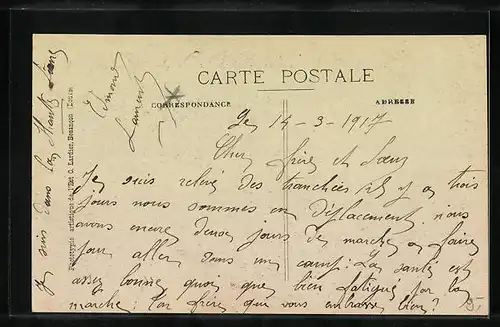 CARTE POSTALE
CORRESPONDANCE
ADRESSE
Le 14-3-1917
Cher frère et Sœur
Je suis relevé des tranchées il y a trois
jours nous sommes en déplacement. nous
avons encore deux jours de marche a faire
pour aller dans un camp. La santé est
assez bonne quoi que bien fatigué par la
marche. Ton frère qui vous embrasse bien
Je suis dans la
Phototypie artistique de l'Est C. Lardier, Besançon (Doubs)
5.-